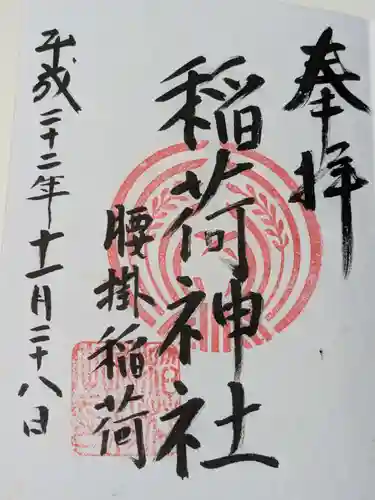 奉拝
稲荷神社
腰掛稲荷
平成二十二年十一月二十八日